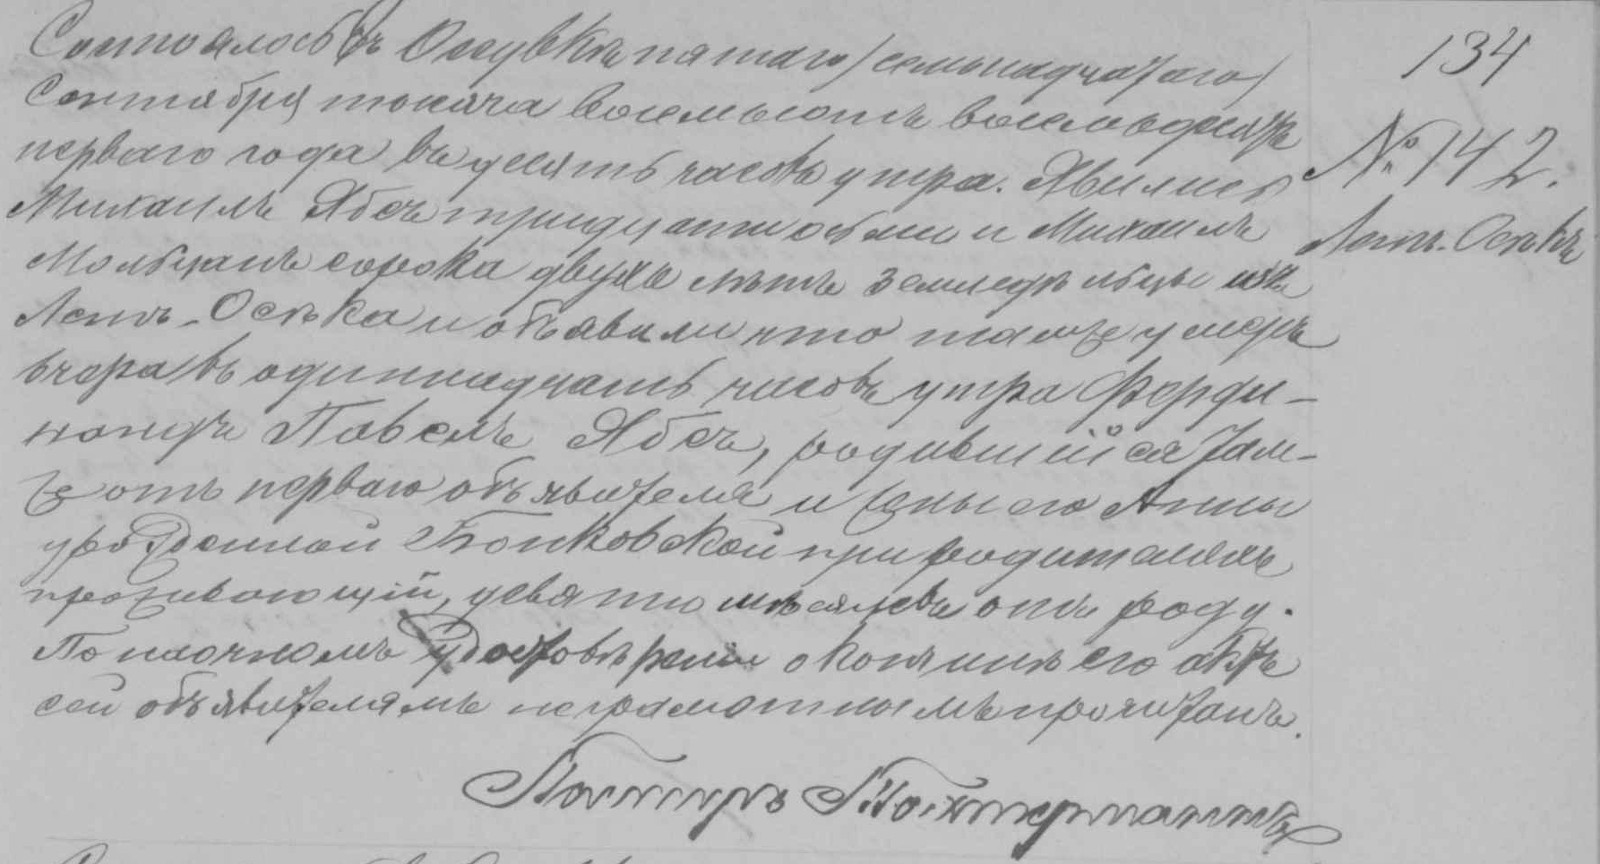 134
№ 142.
Лент. Осѣкъ
Состоялось въ Осувкѣ пятаго /семьнадцатаго/
Сентября тысяча восемьсотъ восемьдесятъ
перваго года въ десять часовъ утра. Явились
Михаилъ Ябсъ тридцати осьми и Михаилъ
сорока двухъ лѣтъ земледѣльцы изъ
Лентъ-Осѣка и объявили что тамже умеръ
вчера въ одиннадцать часовъ утра Ферди-
нандъ Павелъ Ябсъ, родившійся там-
же отъ перваго объявителя и жены его Анны
урожденной Бонковской при родителяхъ
проживающій, девяти мѣсяцевъ отъ роду.
По наочномъ удостовѣреніи о кончинѣ его актъ
сей объявителямъ неграмотнымъ прочитанъ.
Пасторъ